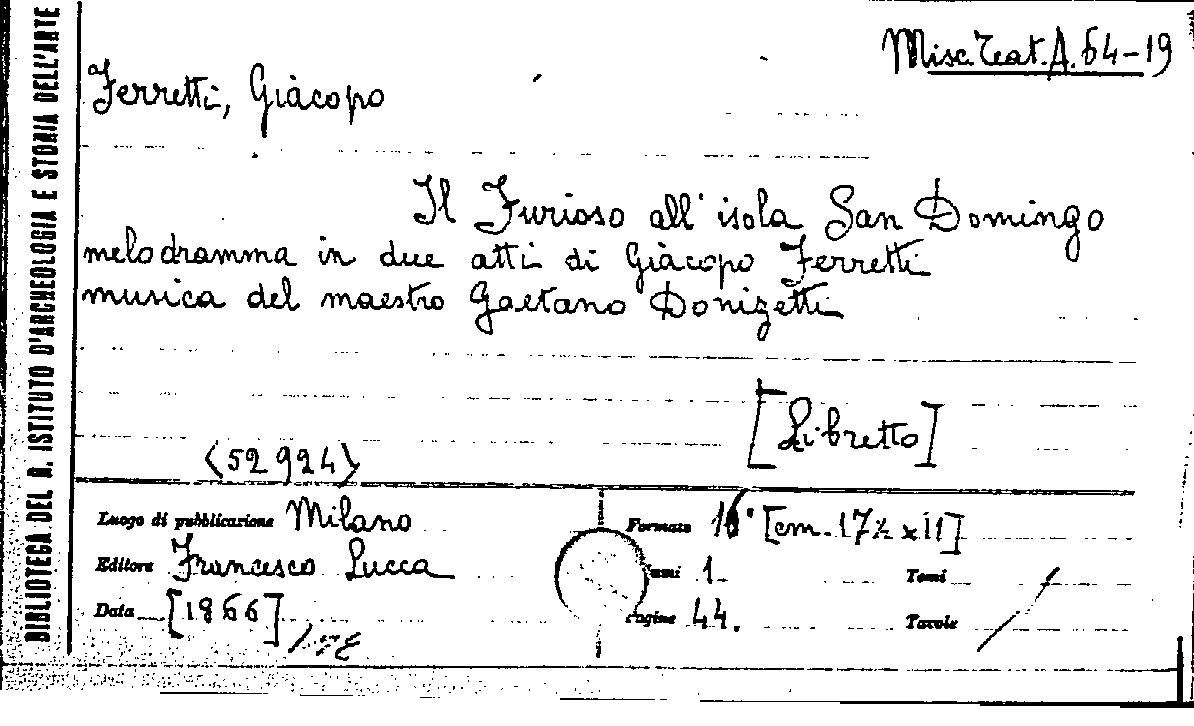 BIBLIOTECA DEL R. ISTITUTO D'ARCHEOLOGIA E STORIA DELL'ARTE
Misc. Teat. A. 64-19
Ferretti, Giàcopo
Il Furioso all'isola San Domingo
melodramma in due atti di Giàcopo Ferretti
musica del maestro Gaetano Donizetti
[Libretto]
<52924>
Luogo di pubblicazione Milano
Formato 16° [cm. 17½ x 11]
Editore Francesco Lucca
umi 1.
Tomi
Data [1866]
Pagine 44.
Tavole